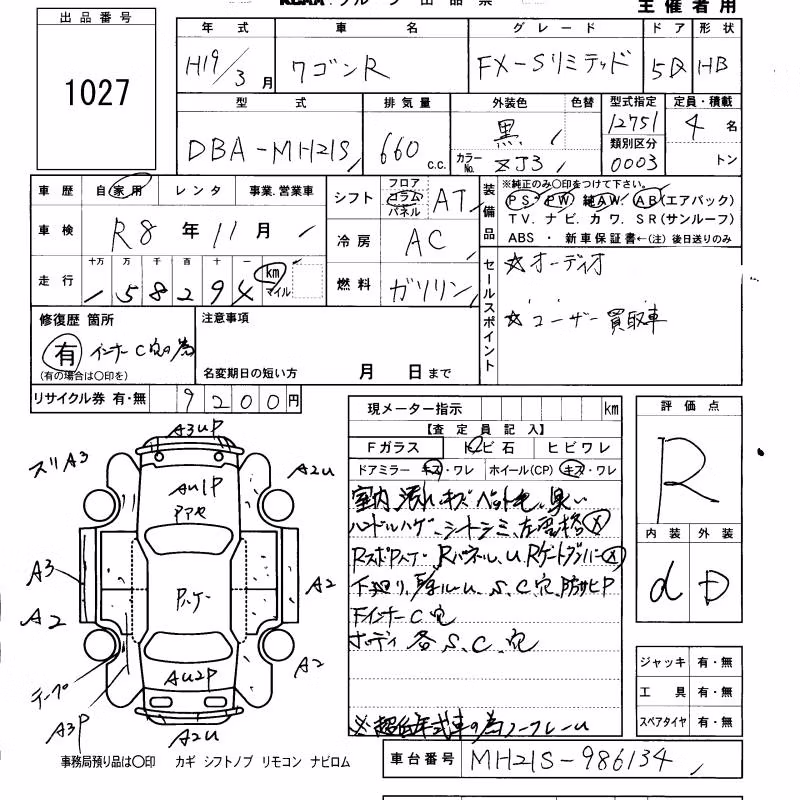 主催者用
出品番号
1027
年式 車名 グレード ドア 形状
H19/3月 ワゴンR FX-Sリミテッド 5D HB
型式 排気量 外装色 色替 型式指定 定員・積載
DBA-MH21S 660 c.c. 黒 12751 4名
カラーNo. ZJ3 類別区分 0003 トン
車歴 自家用 レンタ 事業.営業車
シフト フロア コラム パネル AT
装備品 ※純正のみ〇印をつけて下さい。
PS・PW 純AW・AB(エアバック)
TV.ナビ.カワ.SR(サンルーフ)
ABS・新車保証書←(注)後日送りのみ
車検 R8年11月
冷房 AC
走行 十万 万 千 百 十 一 km マイル
58294
燃料 ガソリン
セールスポイント
☆オーディオ
☆ユーザー買取車
修復歴 箇所 注意事項
有 インナーC穴の為
(有の場合は〇印を)
名変期日の短い方 月 日まで
リサイクル券 有・無 9200円
現メーター指示 km
【査定員記入】
Fガラス トビ石 ヒビワレ
ドアミラー キズ・ワレ ホイール(CP) キズ・ワレ
室内汚れキズ ペット毛、臭い
ハンドルハゲ、シートシミ、左骨格Ⓧ
下廻り、S、C、穴、防サビP
FインナーC穴
ボディ各S、C、穴
※超低年式車の為ノークレーム
評価点
R
内装 外装
d D
ジャッキ 有・無
工具 有・無
スペアタイヤ 有・無
A3UP
ズリA3
A2U
AU1P
アアセ
A3
A2
A2
Pハゲー
A2
テープ
AU2P
A3P
A2U
事務局預り品は〇印 カギ シフトノブ リモコン ナビロム
車台番号 MH21S-986134